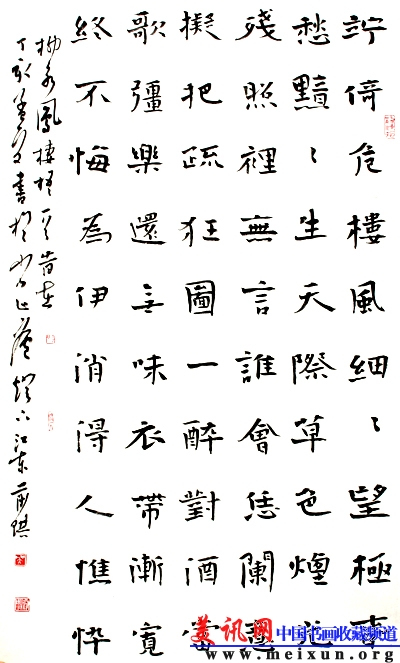 竚倚危樓風細〻望極春
愁黯〻生天際草色煙光
殘照裡無言誰會憑闌意
擬把疏狂圖一醉對酒當
歌彊樂還无味衣帶漸寬
終不悔為伊消得人憔悴
柳永鳳棲梧一首歲在
丁亥書於燈下江東琪
美讯网 中国书画收藏频道
www.meixun.org